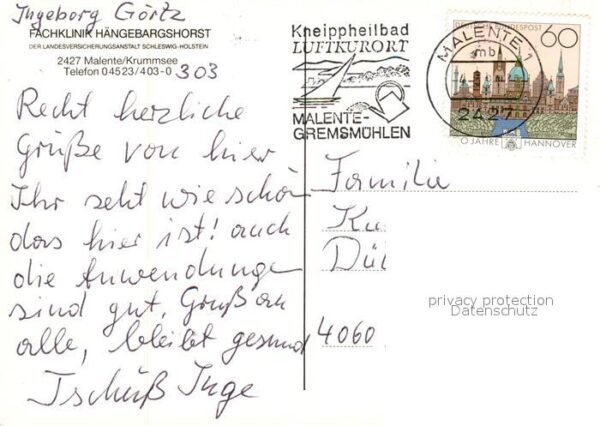 Ingeborg Görtz
FACHKLINIK HÄNGEBARGSHORST
DER LANDESVERSICHERUNGSANSTALT SCHLESWIG-HOLSTEIN
2427 Malente/Krummsee
Telefon 04523/403-0 303
Recht herzliche
Grüße von hier
Ihr seht wie schön
das hier ist! auch
die Anwendungen
sind gut. Gruß an
alle, bleibt gesund
Tschüß Inge
Kneippheilbad
LUFTKURORT
MALENTE-
GREMSMÜHLEN
MALENTE 1
mb
2427
DEUTSCHE BUNDESPOST
60
JAHRE HANNOVER
Familie
4060
privacy protection
Datenschutz